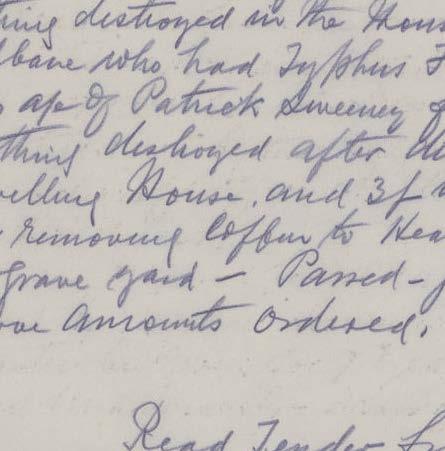 thing destroyed in the Hous
lbane who had Typhus F
a/c of Patrick Sweeney f
thing destroyed after
velling House, and 3/-
removing Coffin to Hea
grave yard — Passed —
ove amounts ordered.
Read Tender fr